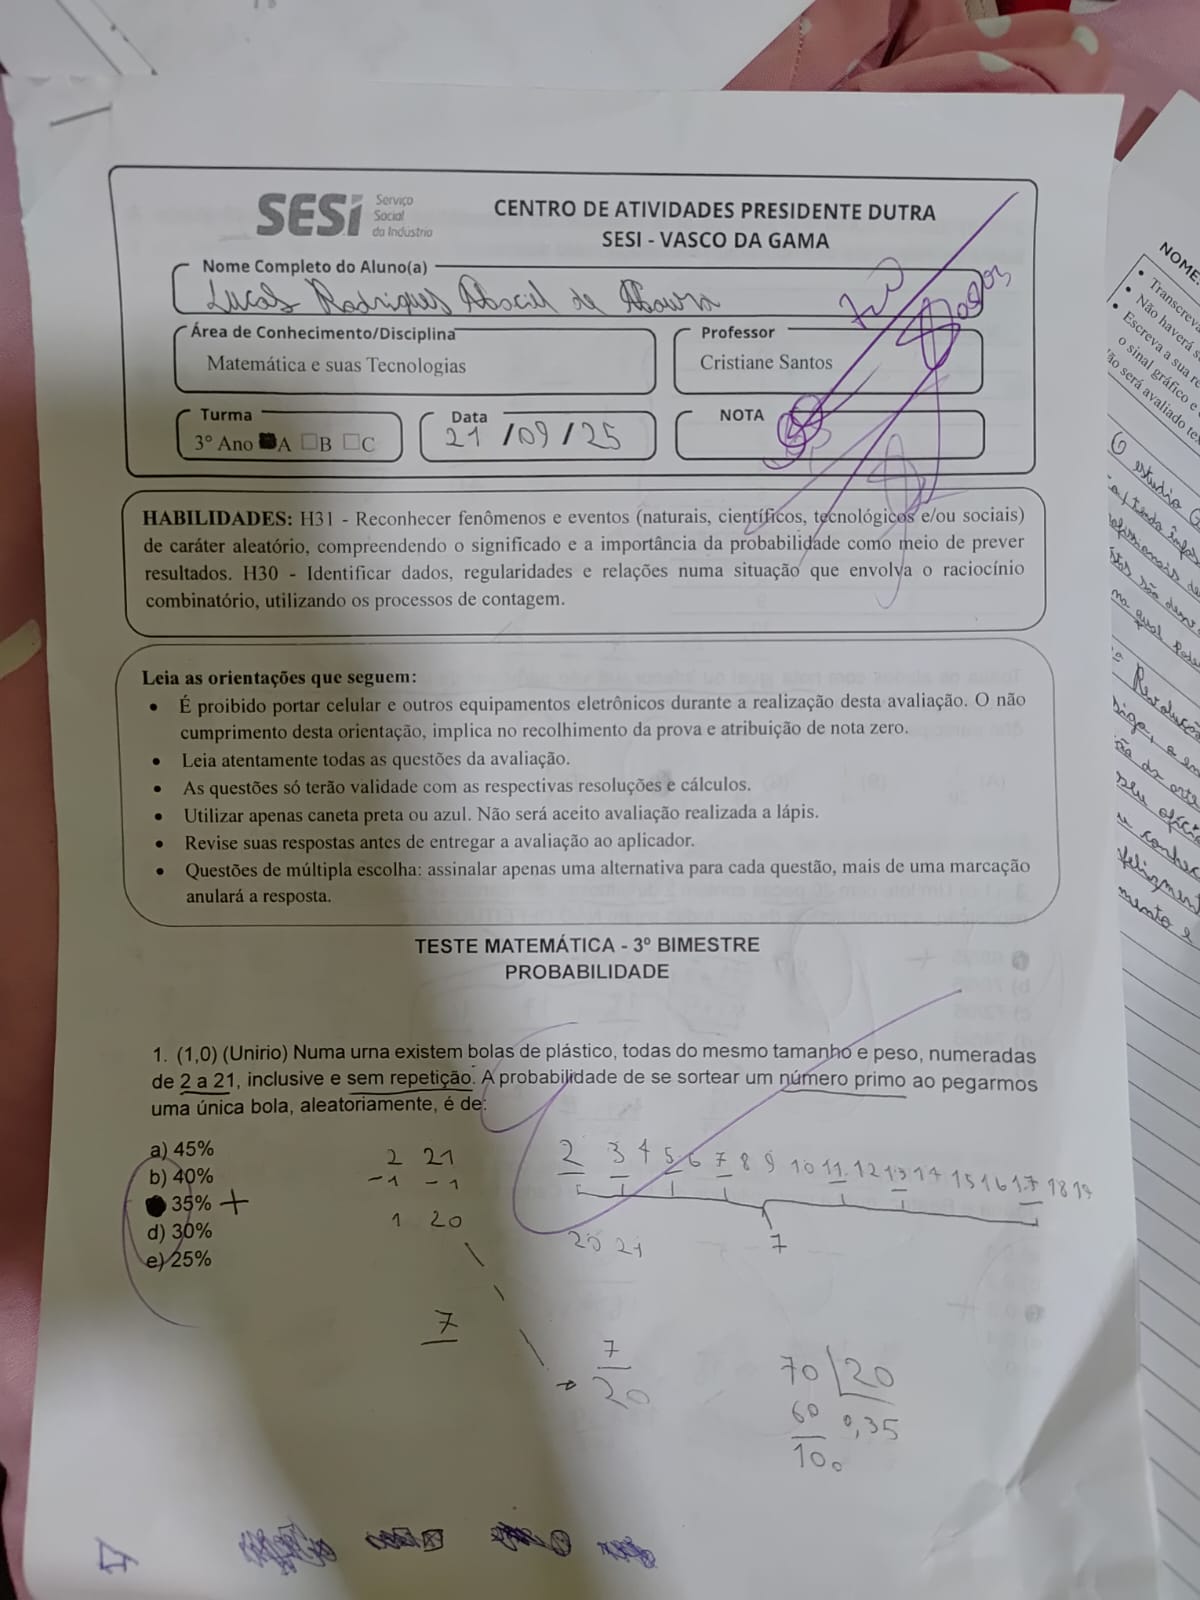 SESI Serviço
Social
da Indústria
CENTRO DE ATIVIDADES PRESIDENTE DUTRA
SESI - VASCO DA GAMA
Nome Completo do Aluno(a)
Lucas Rodrigues de
Área de Conhecimento/Disciplina
Matemática e suas Tecnologias
Professor
Cristiane Santos
Turma
3º Ano A B C
Data
21 /09/25
NOTA
HABILIDADES: H31 - Reconhecer fenômenos e eventos (naturais, científicos, tecnológicos e/ou sociais)
de caráter aleatório, compreendendo o significado e a importância da probabilidade como meio de prever
resultados. H30 - Identificar dados, regularidades e relações numa situação que envolva o raciocínio
combinatório, utilizando os processos de contagem.
Leia as orientações que seguem:
• É proibido portar celular e outros equipamentos eletrônicos durante a realização desta avaliação. O não
cumprimento desta orientação, implica no recolhimento da prova e atribuição de nota zero.
• Leia atentamente todas as questões da avaliação.
• As questões só terão validade com as respectivas resoluções e cálculos.
• Utilizar apenas caneta preta ou azul. Não será aceito avaliação realizada a lápis.
• Revise suas respostas antes de entregar a avaliação ao aplicador.
• Questões de múltipla escolha: assinalar apenas uma alternativa para cada questão, mais de uma marcação
anulará a resposta.
TESTE MATEMÁTICA - 3º BIMESTRE
PROBABILIDADE
1. (1,0) (Unirio) Numa urna existem bolas de plástico, todas do mesmo tamanho e peso, numeradas
de 2 a 21, inclusive e sem repetição. A probabilidade de se sortear um número primo ao pegarmos
uma única bola, aleatoriamente, é de:
a) 45%
b) 40%
35% +
d) 30%
e) 25%
2 21
-1 -1
1 20
2 3 4 5 6 7 8 9 10 11 12 13 14 15 16 17 18 19
20 21
7
7
7
20
70 20
60 0,35
100
NOME:
• Transcreva
• Não haverá
• Escreva a sua
o sinal gráfico e
será avaliado
O estudio